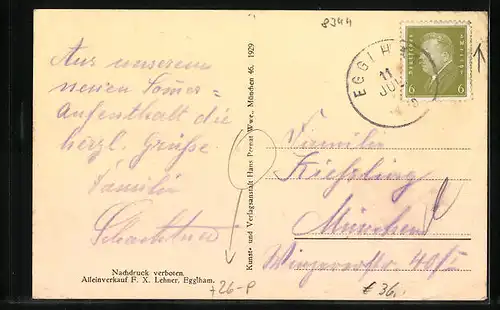 8344
Aus unserem
neuen Somer=
aufenthalt die
herzl. Grüße.
Familie
Nachdruck verboten.
Alleinverkauf F. X. Lehner, Egglham.
Kunst- und Verlagsanstalt Hans Pernat Wwe., München 46, 1929
EGGLH
11
JUL
6 6
Familie
Kießling
München
40/I
+26-P
€ 36,